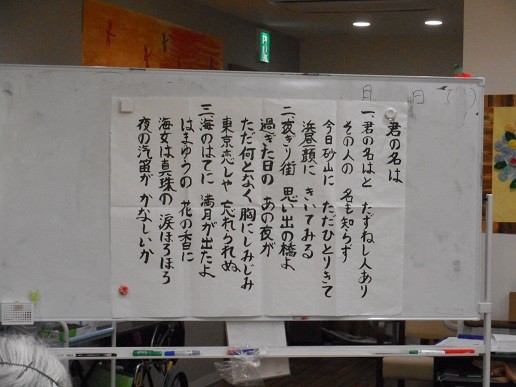 君の名は
一、君の名はと たずねし人あり
その人の 名も知らず
今日砂山に ただひとりきて
浜昼顔に きいてみる
二、夜ぎり街 思い出の橋よ
過ぎた日の あの夜が
ただ何となく 胸にしみじみ
東京恋しや 忘れられぬ
三、海のはてに 満月が出たよ
はまゆうの 花の香に
海女は真珠の 涙ほろほろ
夜の汽笛が かなしいか
月 日 ( )